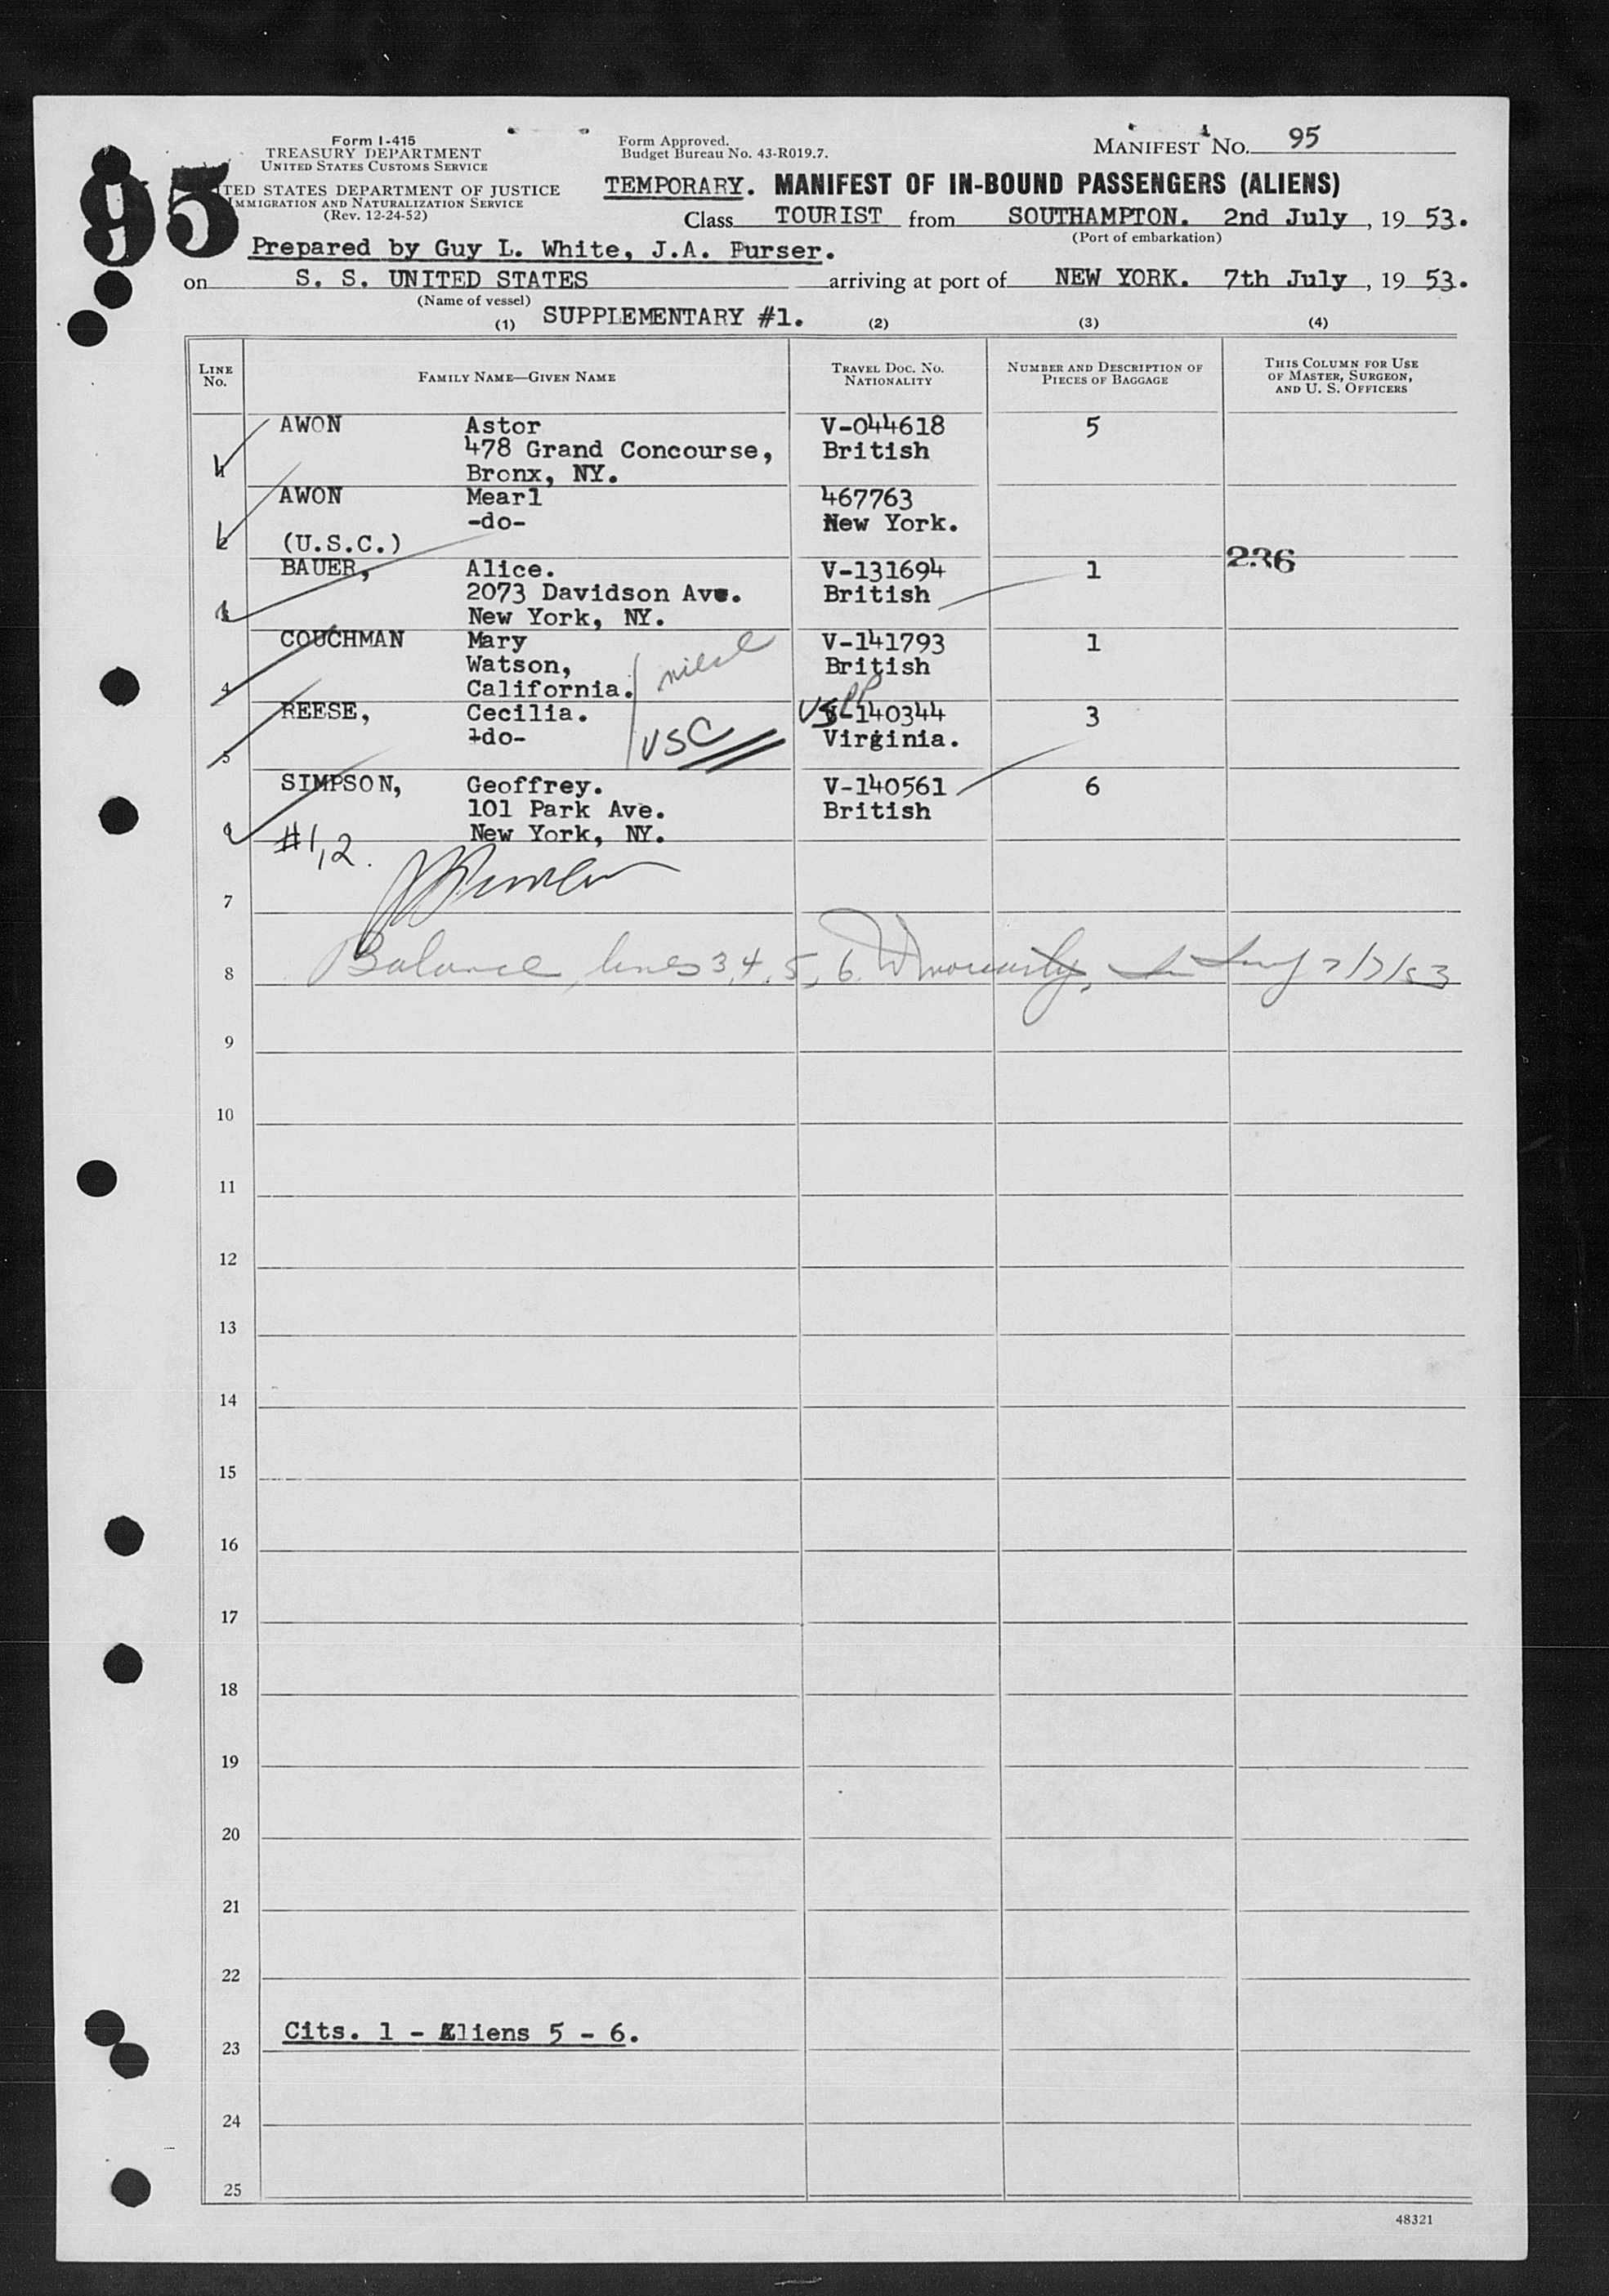 Form I-415
TREASURY DEPARTMENT
UNITED STATES CUSTOMS SERVICE
TED STATES DEPARTMENT OF JUSTICE
IMMIGRATION AND NATURALIZATION SERVICE
(Rev. 12-24-52)
95
Form Approved.
Budget Bureau No. 43-R019.7.
MANIFEST NO. 95
TEMPORARY. MANIFEST OF IN-BOUND PASSENGERS (ALIENS)
Class TOURIST from SOUTHAMPTON. 2nd July, 19 53.
(Port of embarkation)
Prepared by Guy L. White, J.A. Purser.
on S. S. UNITED STATES arriving at port of NEW YORK. 7th July, 19 53.
(Name of vessel)
(1) SUPPLEMENTARY #1. (2) (3) (4)
LINE NO. FAMILY NAME—GIVEN NAME TRAVEL DOC. NO. NATIONALITY NUMBER AND DESCRIPTION OF PIECES OF BAGGAGE THIS COLUMN FOR USE OF MASTER, SURGEON, AND U. S. OFFICERS
AWON Astor V-044618 5
478 Grand Concourse, British
1 Bronx, NY.
AWON Mearl 467763
-do- New York.
2 (U.S.C.)
236
BAUER, Alice. V-131694 1
2073 Davidson Ave. British
3 New York, NY.
COUCHMAN Mary V-141793 1
Watson, British
4 California. niece
REESE, Cecilia. USPP V-140344 3
-do- USC Virginia.
5
SIMPSON, Geoffrey. V-140561 6
101 Park Ave. British
6 New York, NY.
#1,2.
7
8 Balance, lines 3, 4, 5, 6 7/7/53
9
10
11
12
13
14
15
16
17
18
19
20
21
22
Cits. 1 - Aliens 5 - 6.
23
24
25
48321